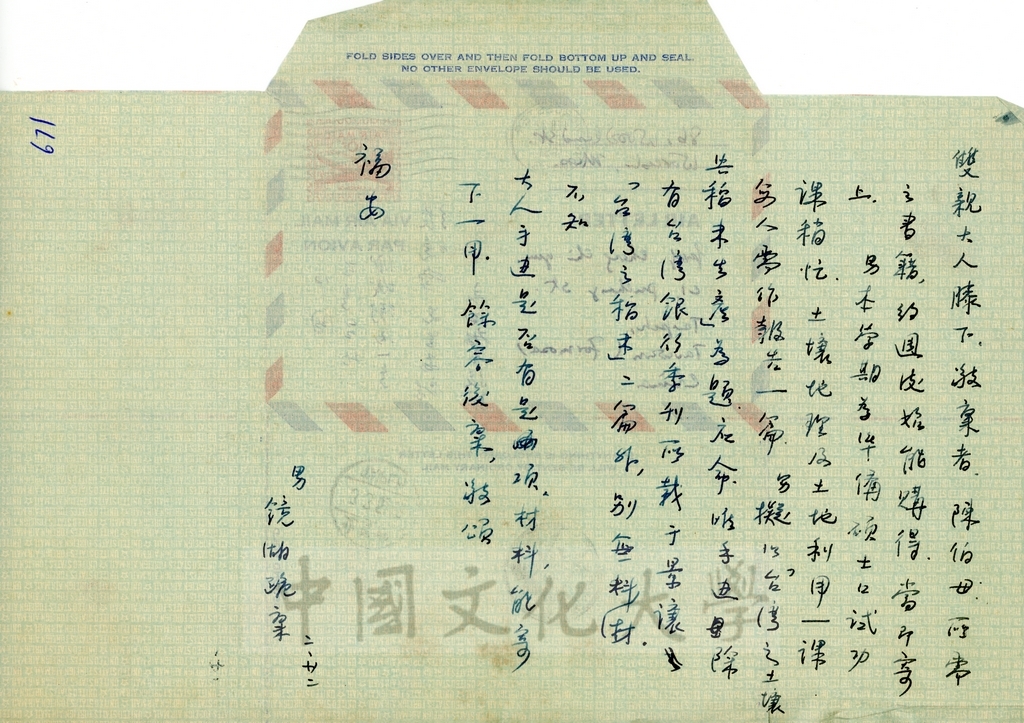 FOLD SIDES OVER AND THEN FOLD BOTTOM UP AND SEAL
NO OTHER ENVELOPE SHOULD BE USED.
671
雙親大人膝下,敬稟者.陳伯母所需
之書籍,約週後始能購得.當即寄
上. 男本學期為準備碩士口試功
課稍忙.土壤地理及土地利用一課
每人需作報告一篇.男擬以「台灣之土壤
與稻米生產」為題應命.唯手邊除
有台灣銀行季刊所載于景讓
「台灣之稻米」二篇外,別無料.
不知
大人手邊是否有是項材料,能寄
下一用. 餘容後稟,敬頌
福安
男
鏡湖跪稟
二、廿二
中國文化大學